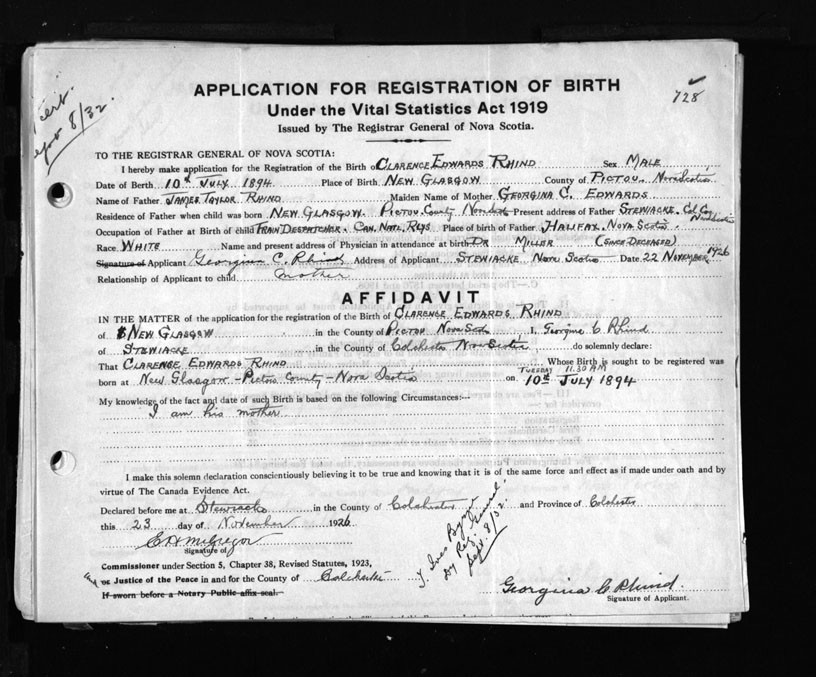 cert.
8/32.
728
APPLICATION FOR REGISTRATION OF BIRTH
Under the Vital Statistics Act 1919
Issued by The Registrar General of Nova Scotia.
TO THE REGISTRAR GENERAL OF NOVA SCOTIA:
I hereby make application for the Registration of the Birth of CLARENCE EDWARDS RHIND Sex MALE
Date of Birth 10th JULY 1894 Place of Birth NEW GLASGOW County of PICTOU. Nova Scotia
Name of Father JAMES TAYLOR RHIND Maiden Name of Mother GEORGINA C. EDWARDS
Residence of Father when child was born NEW GLASGOW. PICTOU. County Present address of Father STEWIACKE. Col. Co. Nova Scotia
Occupation of Father at Birth of child TRAIN DESPATCHER. CAN. NATL. RLYS Place of birth of Father HALIFAX. NOVA SCOTIA.
Race WHITE Name and present address of Physician in attendance at birth DR MILLER (SINCE DECEASED)
Signature of Applicant Georgina C. Rhind Address of Applicant STEWIACKE Nova Scotia Date 22 NOVEMBER 1926
Relationship of Applicant to child mother
AFFIDAVIT
IN THE MATTER of the application for the registration of the Birth of CLARENCE EDWARDS RHIND
of NEW GLASGOW in the County of PICTOU I, Georgina C Rhind
of STEWIACKE in the County of Colchester Nova Scotia do solemnly declare:
That CLARENCE EDWARDS RHIND Whose Birth is sought to be registered was
born at New Glasgow - Pictou County - Nova Scotia on TUESDAY 11.30 AM 10th JULY 1894
My knowledge of the fact and date of such Birth is based on the following Circumstances:—
I am his mother
I make this solemn declaration conscientiously believing it to be true and knowing that it is of the same force and effect as if made under oath and by
virtue of The Canada Evidence Act.
Declared before me at Stewiacke in the County of Colchester and Province of Colchester
this 23 day of November 1926
C H McGregor
Signature of
Commissioner under Section 5, Chapter 38, Revised Statutes, 1923,
or Justice of the Peace in and for the County of Colchester
If sworn before a Notary Public affix seal.
Dy Reg. General.
Sept. 8/32.
Georgina C Rhind.
Signature of Applicant.